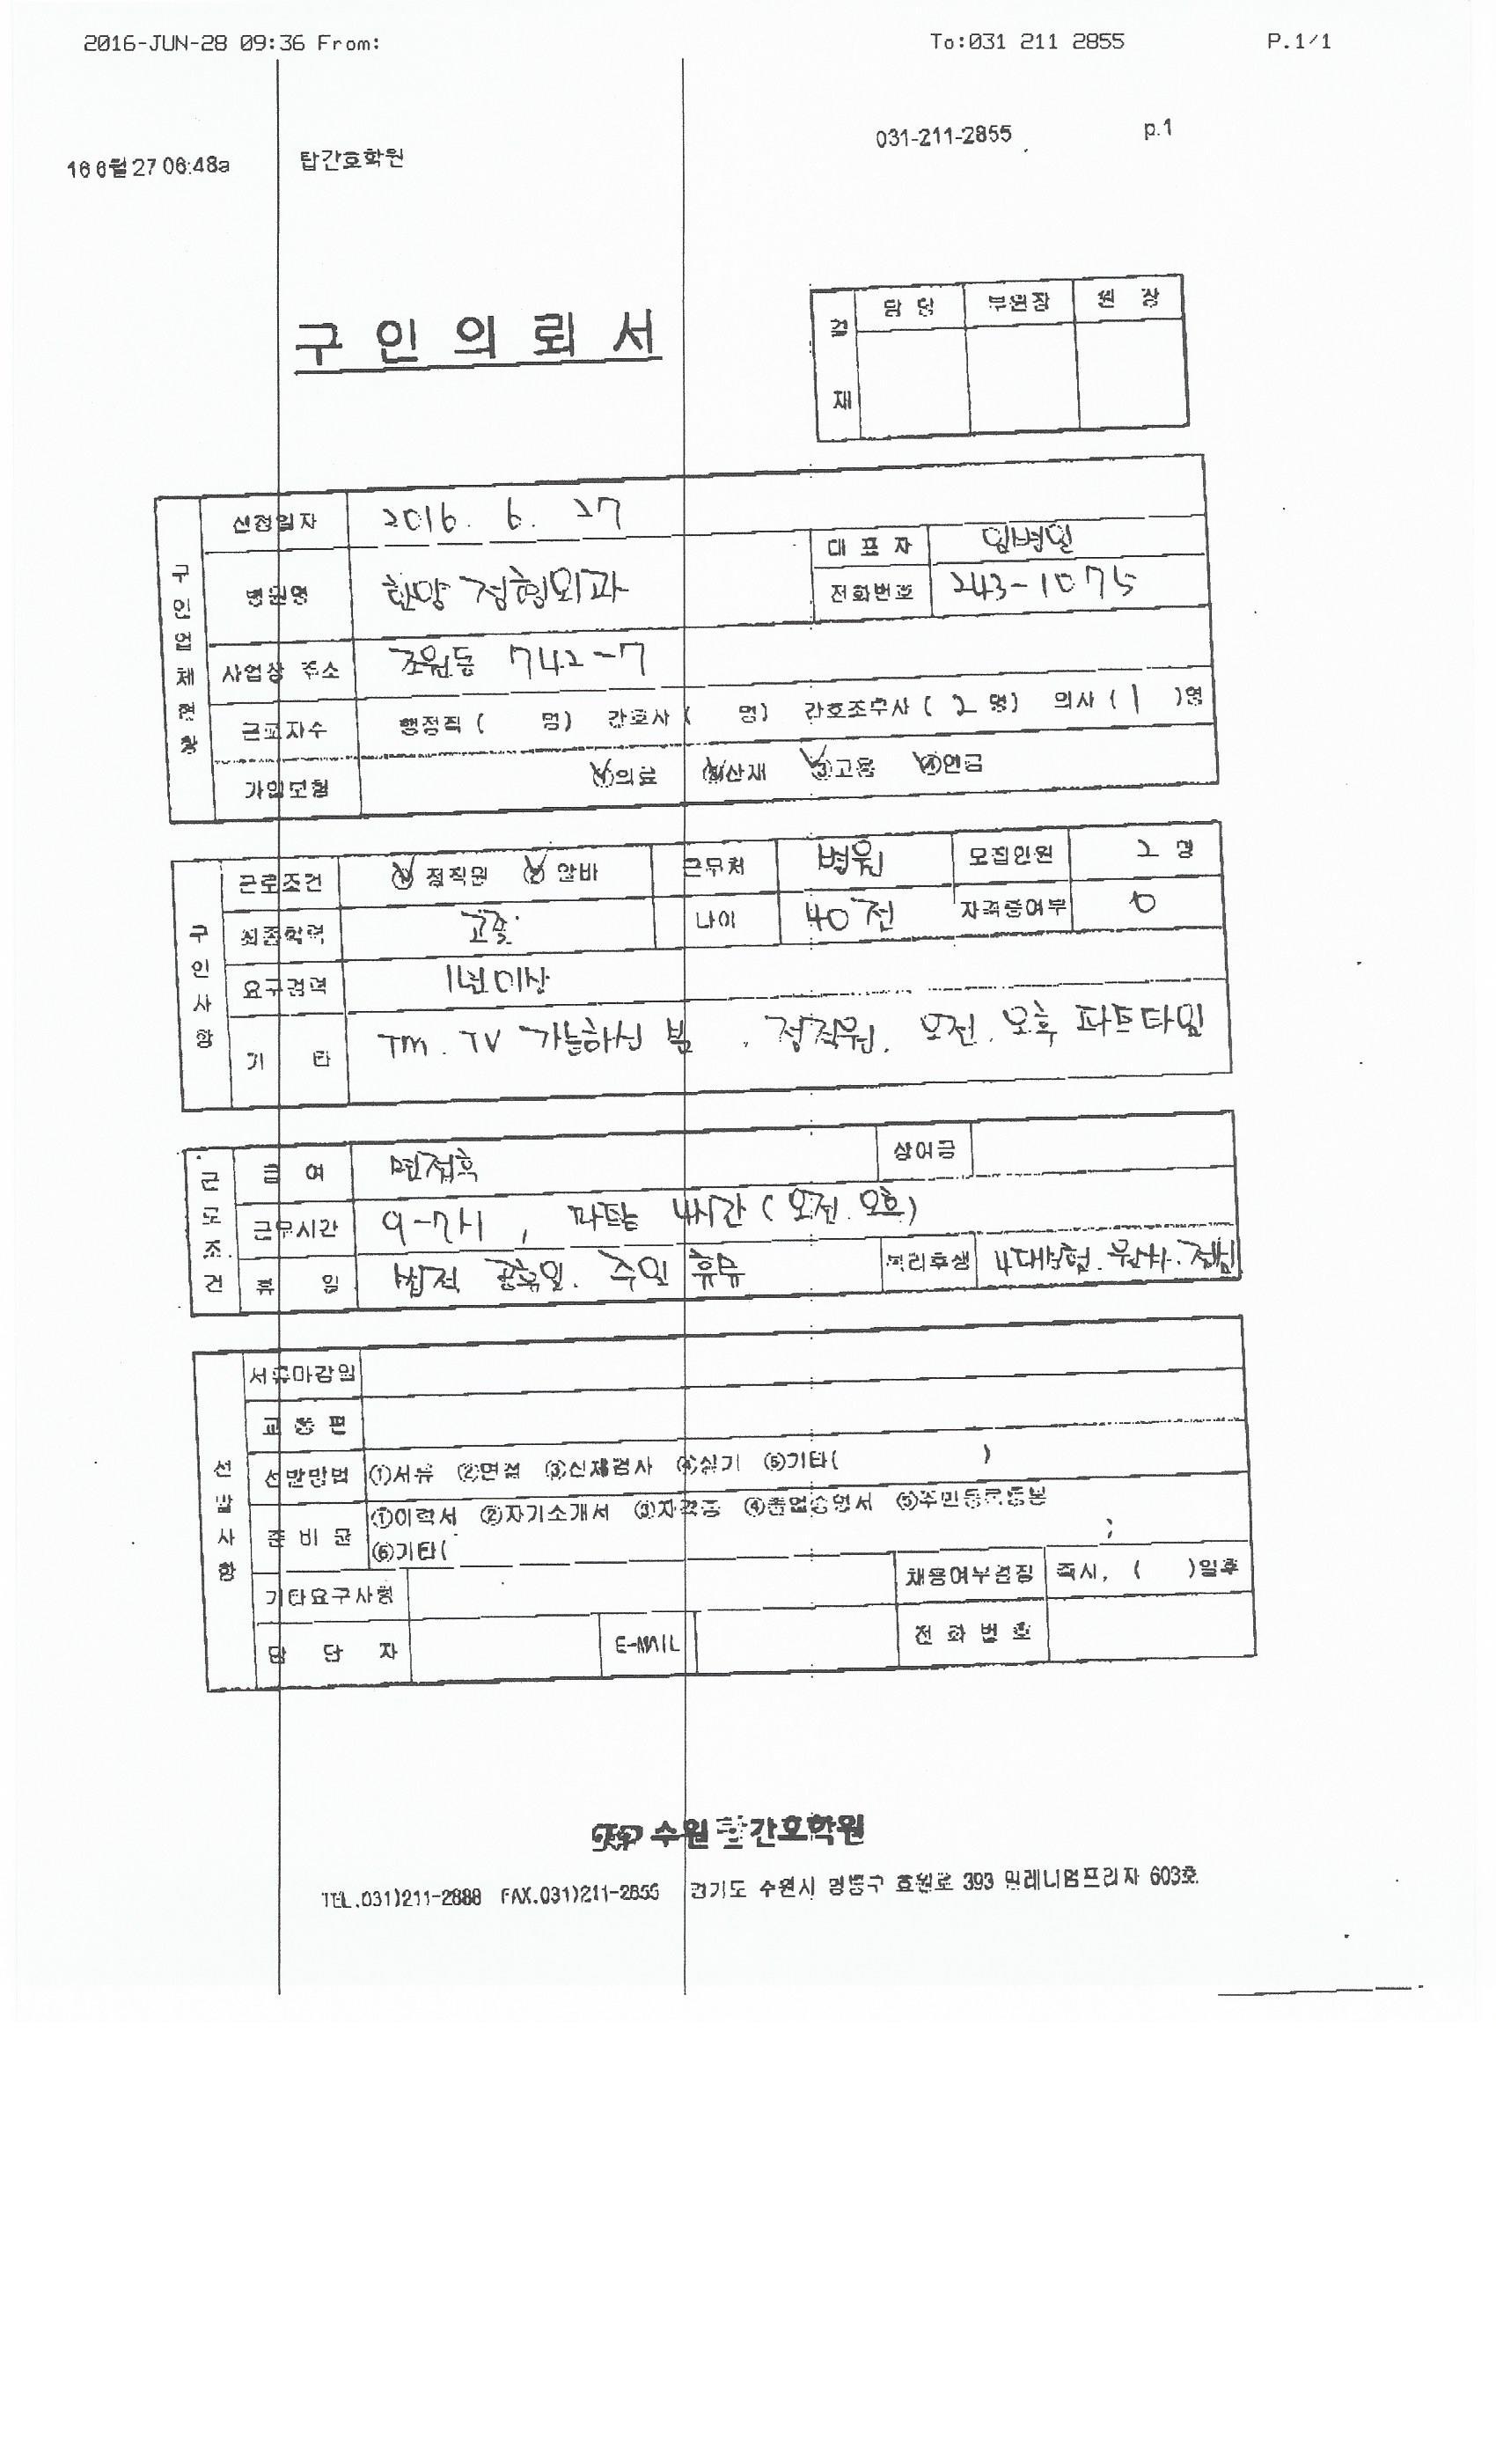 2016-JUN-28 09:36 From: To:031 211 2855 P.1/1
16 6월 27 06:48a 탑간호학원 031-211-2855 p.1
구 인 의 뢰 서
결재 담 당 부원장 원 장
구인업체현황
신청일자 2016. 6. 27
병원명 한양 정형외과
대 표 자 임병일
전화번호 243-1075
사업장 주소 조원동 742-7
근로자수 행정직 ( 명) 간호사 ( 명) 간호조무사 ( 2 명) 의사 ( 1 )명
가입보험 ①의료 ②산재 ③고용 ④연금
구인사항
근로조건 ① 정직원 ② 알바 근무처 병원 모집인원 2 명
최종학력 고졸 나이 40전 자격증여부 O
요구경력 1년이상
기 타 TM. TV 가능하신 분. 정직원. 오전. 오후 파트타임
근로조건
급 여 면접후 상여금
근무시간 9-7시, 파트 4시간 (오전. 오후)
휴 일 법적 공휴일. 주일 휴무 복리후생 4대보험. 월차. 점심
선발사항
서류마감일
교 통 편
선발방법 ①서류 ②면접 ③신체검사 ④실기 ⑤기타( )
준 비 물 ①이력서 ②자기소개서 ③자격증 ④졸업증명서 ⑤주민등록등본
⑥기타( )
기타요구사항 채용여부결정 즉시, ( )일후
담 당 자 E-MAIL 전 화 번 호
TOP 수원 탑간호학원
TEL.031)211-2888 FAX.031)211-2855 경기도 수원시 영통구 효원로 393 밀레니엄프라자 603호